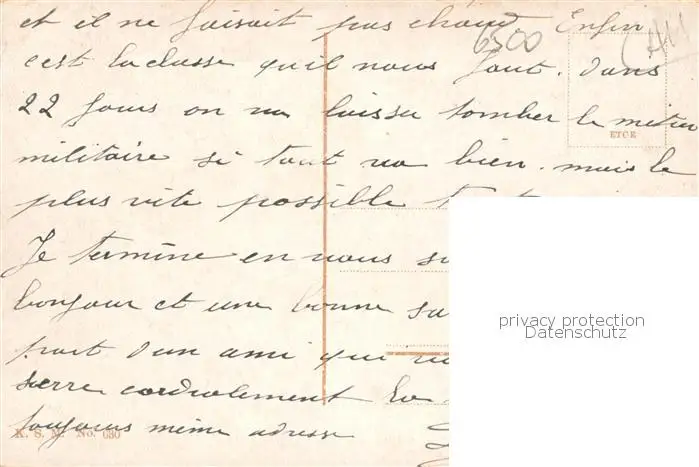 et il ne faisait pas chaud Enfin
6500
c'est la classe qu'il nous faut. Dans
22 Jours on va laisser tomber le métier
ETCR
militaire si tout va bien. mais le
plus vite possible
Je termine en vous
bonjour et une bonne
part d'un ami qui
serre cordialement la
toujours même adresse
K. S. M. No. 030
privacy protection
Datenschutz